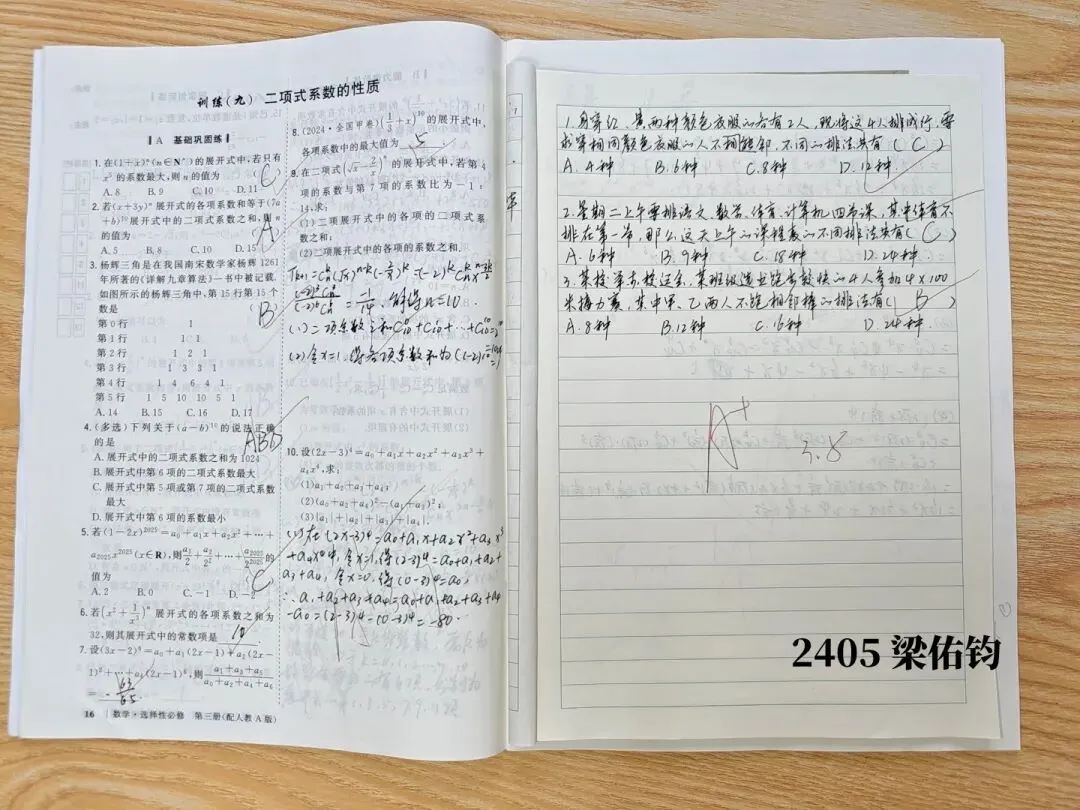 训练(九) 二项式系数的性质
A 基础巩固练
1. 在(1+x)ⁿ(n∈N*)的展开式中,若只有
x⁵的系数最大,则n的值为
C
A. 8 B. 9 C. 10 D. 11
2. 若(x+3y)ⁿ展开式的各项系数和等于(7a
+b)¹⁰展开式中的二项式系数之和,则n
的值为
A
A. 5 B. 8 C. 10 D. 15
3. 杨辉三角是在我国南宋数学家杨辉1261
年所著的《详解九章算法》一书中被记载.
如图所示的杨辉三角中,第15行第15个
数是
B
第0行 1
第1行 1 1
第2行 1 2 1
第3行 1 3 3 1
第4行 1 4 6 4 1
第5行 1 5 10 10 5 1
A. 14 B. 15 C. 16 D. 17
4. (多选)下列关于(a-b)¹⁰的说法正确
的是
ABD
A. 展开式中的二项式系数之和为1024
B. 展开式中第6项的二项式系数最大
C. 展开式中第5项或第7项的二项式系数
最大
D. 展开式中第6项的系数最小
5. 若(1-2x)²⁰²⁵=a₀+a₁x+a₂x²+…+
a₂₀₂₅x²⁰²⁵(x∈R),则a₁/2+a₂/2²+…+a₂₀₂₅/2²⁰²⁵的
值为
C
A. 2 B. 0 C. -1 D. -2
6. 若(x²+1/x³)ⁿ展开式的各项系数之和为
32,则其展开式中的常数项是 10
7. 设(3x-2)⁶=a₀+a₁(2x-1)+a₂(2x-
1)²+…+a₆(2x-1)⁶,则(a₁+a₃+a₅)/(a₀+a₂+a₄+a₆)
= -63/65.
16 数学·选择性必修 第三册(配人教A版)
8. (2024·全国甲卷)(1/3+x)¹⁰的展开式中,
各项系数中的最大值为 5
9. 在二项式(√x-2/x)ⁿ的展开式中,若第4
项的系数与第7项的系数比为-1:
14,求:
(1)二项展开式中的各项的二项式系
数之和;
(2)二项展开式中的各项的系数之和.
=-1/14, 解得n=10.
(1)二项系数之和C₁₀⁰+C₁₀¹+…+C₁₀¹⁰=2¹⁰
(2)令x=1,得各项系数和为(1-2)¹⁰=
10. 设(2x-3)⁴=a₀+a₁x+a₂x²+a₃x³+
a₄x⁴,求:
(1)a₁+a₂+a₃+a₄;
(2)(a₀+a₂+a₄)²-(a₁+a₃)²;
(3)|a₁|+|a₂|+|a₃|+|a₄|.
(1)在(2x-3)⁴=a₀+a₁x+a₂x²+a₃x³
+a₄x⁴中,令x=1,得(2-3)⁴=a₀+a₁+a₂+
a₃+a₄, 令x=0,得(0-3)⁴=a₀,
∴a₁+a₂+a₃+a₄=a₀+a₁+a₂+a₃+a₄
-a₀=(2-3)⁴-(0-3)⁴=-80.
1. 身穿红、黄两种颜色衣服的各有2人,现将这4人排成一行,要
求穿相同颜色衣服的人不相邻,不同的排法共有( C )
A. 4种 B. 6种 C. 8种 D. 12种
2. 星期二上午要排语文、数学、体育、计算机四节课,其中体育不
排在第一节,那么这天上午的课程表的不同排法共有( C )
A. 6种 B. 9种 C. 18种 D. 24种
3. 某校举办校运会,某班级选出跑步较快的4人参加4×100
米接力赛,其中甲、乙两人不跑相邻棒的排法有( B )
A. 8种 B. 12种 C. 16种 D. 24种
A+
3.8
2405 梁佑钧